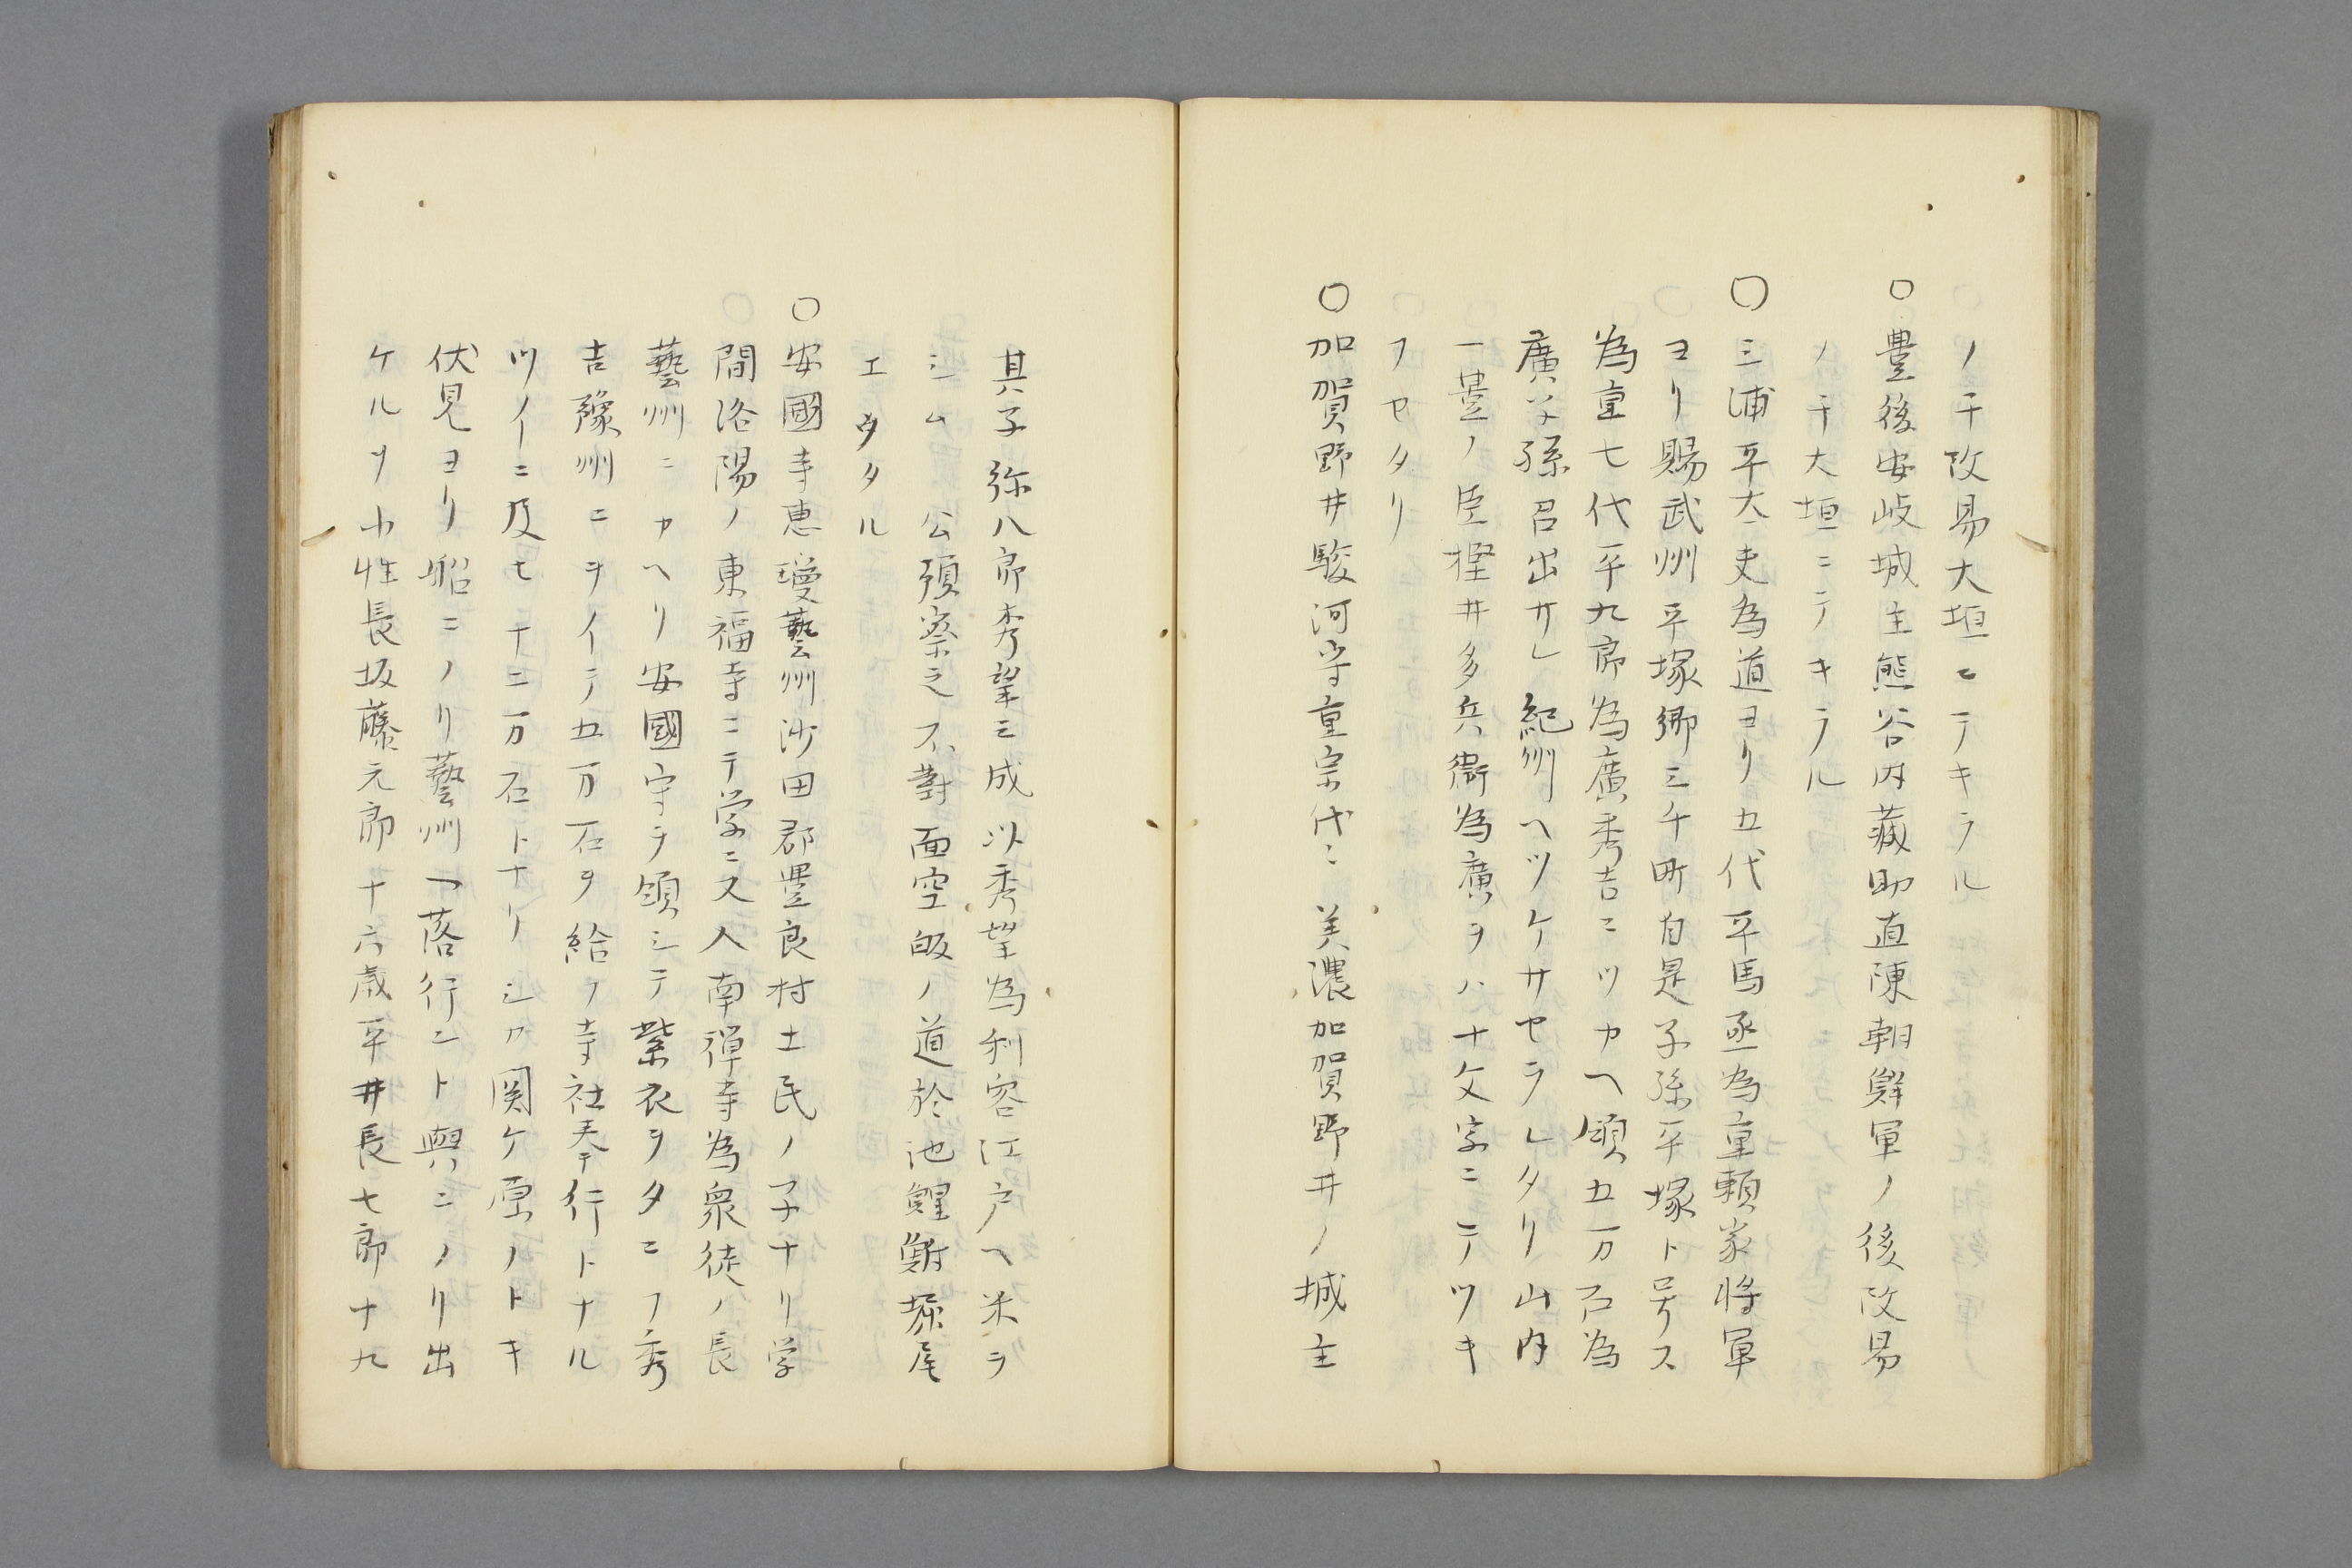 ノチ改易大垣ニテキラル
○豊後安岐城主熊谷内藏助直陳朝鮮軍ノ後改易
ノチ大垣ニテキラル
○三浦平大夫為道ヨリ五代平馬丞為重頼家将軍
ヨリ賜武州平塚郷三千町自是子孫平塚ト号ス
為重七代平九郎為廣秀吉ニツカヘ領五万石為
廣子孫召出サレ紀州ヘツケサセラレタリ山内
一豊ノ臣樫井多兵衞為廣ヲハ十文字ニテツキ
フセタリ
○加賀野井駿河守重宗代ミ美濃加賀野井ノ城主
其子弥八郎秀望三成以秀望為刺客江戸ヘ米ラ
シム 公預察之不對面空皈ノ道於池鯉鮒堀尾
エウタル
○安國寺惠瓊藝州沙田郡豊良村土民ノ子ナリ学
間洛陽ノ東福寺ニテ学ニ又入南禅寺為衆徒ノ長
藝州ニカヘリ安國寺ヲ領シテ紫衣ヲタマフ秀
吉豫州ニヲイテ五万石ヲ給フ寺社奉行トナル
ツイニ及七十二万石トナリシカ関ケ原ノトキ
伏見ヨリ船ニノリ藝州ヘ落行ント輿ニノリ出
ケルヲ小性長坂藤元郎十六歳平井長七郎十九